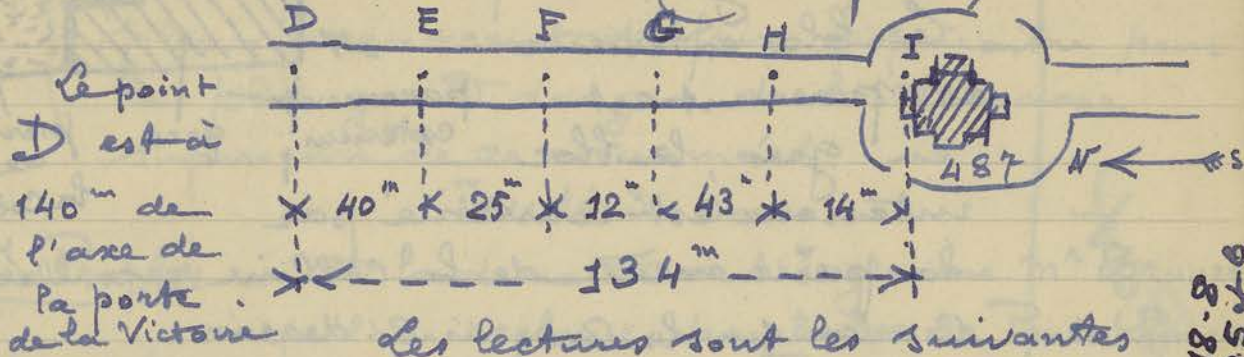 D E F G H I
Le point
D est à
140 m de
l'axe de
la porte
de la Victoire.
487 N S
40 m 25 m 12 m 43 m 14 m
134 m
Les lectures sont les suivantes